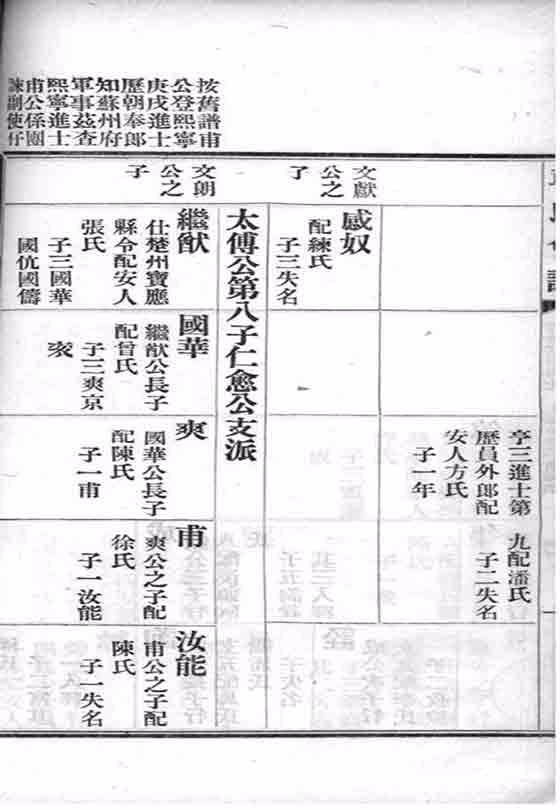 按舊譜甫
公登熙寧
庚戌進士
歷朝奉郎
知蘇州府
軍事茲查
熙寧進士
甫公係團
練副使仔
亨三進士第
歷員外郎配
安人方氏
子一年
九配潘氏
子二失名
文獻
公之
子
感奴
配練氏
子三失名
太傅公第八子仁愈公支派
文朗
公之
子
繼猷
仕楚州寶應
縣令配安人
張氏
子三國華
國伉國儔
國華
繼猷公長子
配曾氏
子三爽京
爽
國華公長子
配陳氏
子一甫
甫
爽公之子配
徐氏
子一汝能
汝能
甫公之子配
陳氏
子一失名